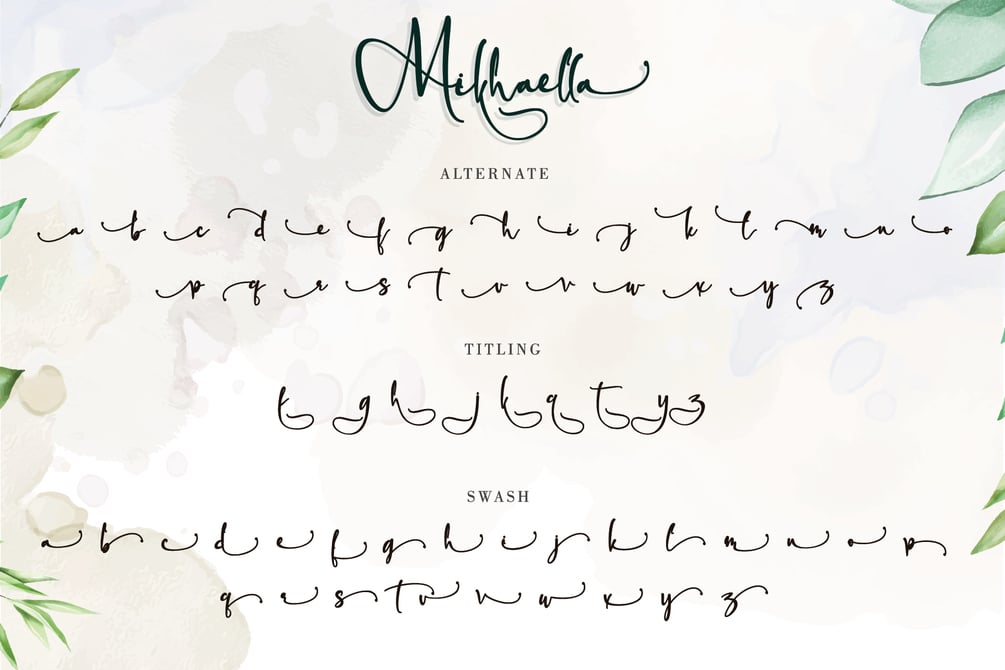 Mikhaella
ALTERNATE
a b c d e f g h i j k l m n o
p q r s t u v w x y z
TITLING
f g h j k q t y z
SWASH
a b c d e f g h i j k l m n o p
q r s t u v w x y z